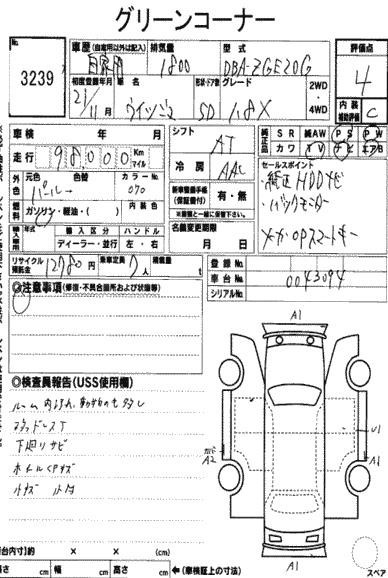 グリーンコーナー
No.
3239
車歴(自家用以外は記入) 排気量 型式
自家用 1800 DBA-ZGE20G
初度登録年月 車名 形状・ドア数 グレード
21/11月 ウィッシュ 5D 1.8X
2WD・4WD
評価点
4
内装補助評価 C
車検 年 月
走行 98000 Km マイル
シフト AT
冷房 AAC
純正品 SR 純AW PS PW
カワ TV ナビ エアB
外色 元色 色替 カラーNo.
パール 070
燃料 ガソリン・軽油・( ) 内装色
新車整備手帳(保証書付) 有・無
※書類と一緒に保管下さい。
セールスポイント
・純正HDDナビ
・バックモニター
メーカーOPスマートキー
輸入車 年式 輸入区分 ハンドル
ディーラー・並行 左・右
名義変更期限
月 日
リサイクル預託金 12780円 乗車定員 7人 積載量 t
登録No.
車台No. 0043094
シリアルNo.
◎注意事項(修復・不具合箇所および状態等)
◎検査員報告(USS使用欄)
ルーム内汚れ、
下廻りサビ
小キズ 小凹
A1
A2
U1
A1
A1
(荷台内寸)約 × × (cm)
長さ cm 幅 cm 高さ cm ←(車検証上の寸法)
スペア